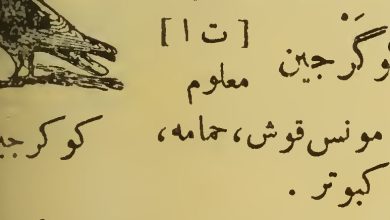 وكَرْجين [ت ا]
معلوم
مونس قوش، حمامه،
كبوتر.
كوكرجي